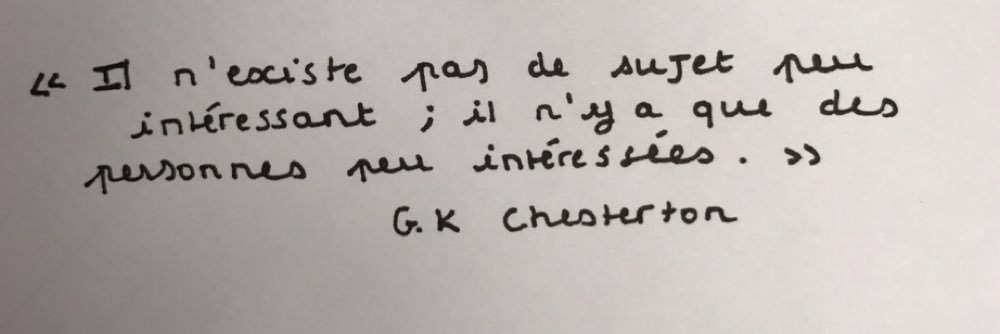 « Il n'existe pas de sujet peu
intéressant ; il n'y a que des
personnes peu intéressées. »
G.K Chesterton